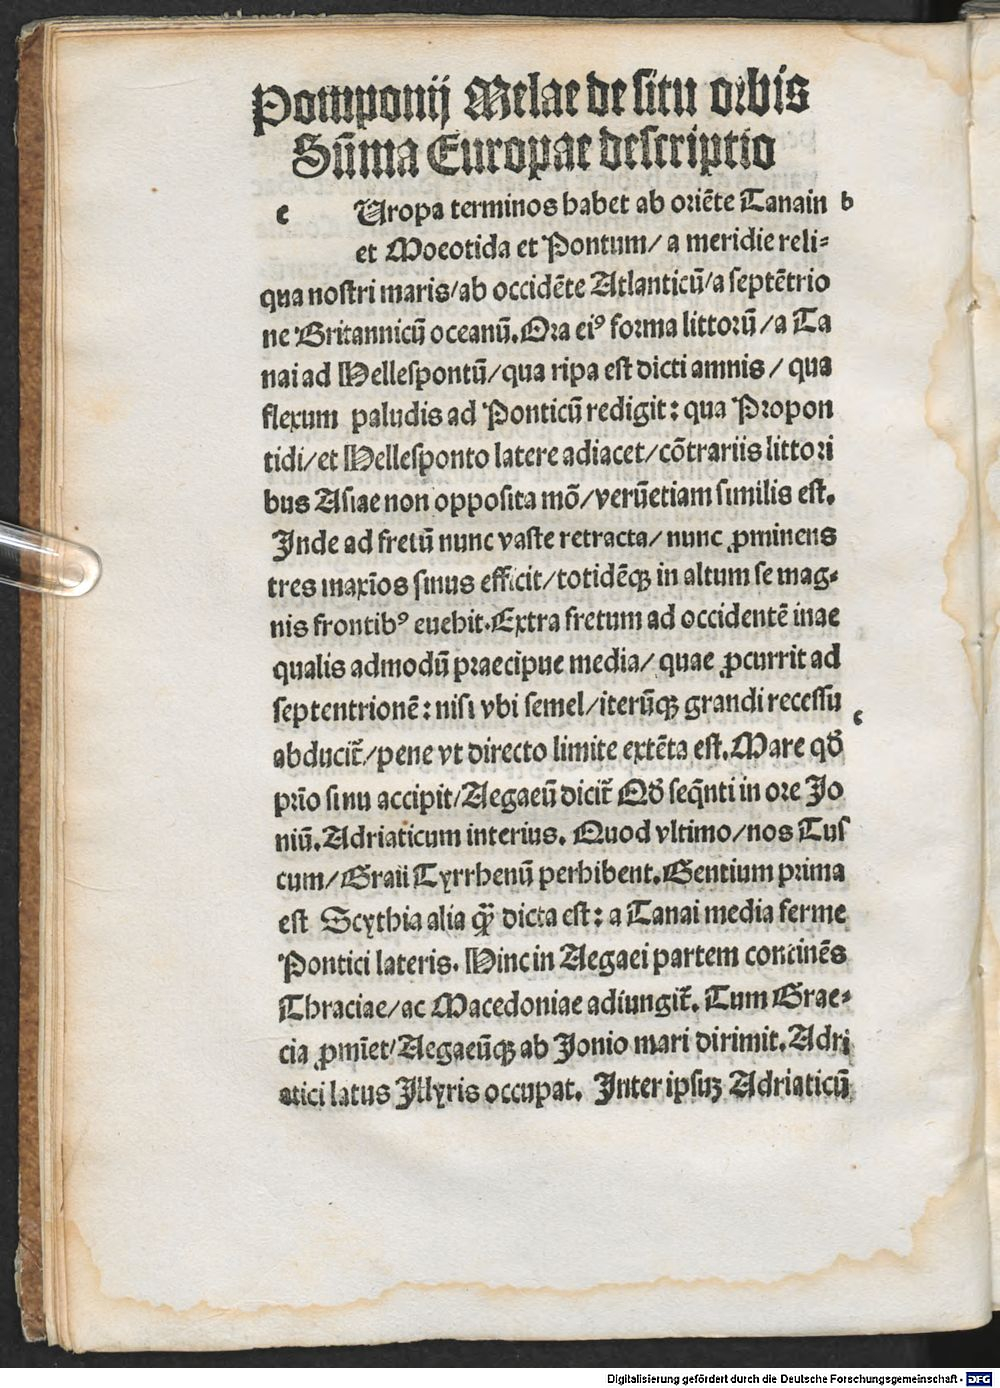 Pomponij Melae de situ orbis
Sūma Europae descriptio
e Uropa terminos habet ab oriēte Tanain b
et Moeotida et Pontum/ a meridie reli⸗
qua nostri maris/ab occidēte Atlanticū/a septētrio
ne Britannicū oceanū. Ora eiꝰ forma littorū/a Ta
nai ad Hellespontū/qua ripa est dicti amnis/ qua
flexum paludis ad Ponticū redigit: qua Propon
tidi/et Hellesponto latere adiacet/cōtrariis littori
bus Asiae non opposita mō/verūetiam similis est.
Inde ad fretū nunc vaste retracta/ nunc ꝓminens
tres maxīos sinus efficit/totidēqꝫ in altum se mag⸗
nis frontibꝰ euehit. Extra fretum ad occidentē inae
qualis admodū praecipue media/ quae ꝓcurrit ad
septentrionē: nisi vbi semel/iterūqꝫ grandi recessu
c
abducit̄/pene vt directo limite extēta est. Mare qđ
prīo sinu accipit/Aegaeū dicit̄ Qđ seq̄nti in ore Io
niū. Adriaticum interius. Quod vltimo/nos Tus
cum/Graii Tyrrhenū perhibent. Gentium prima
est Scythia alia q̄ꝫ dicta est: a Tanai media ferme
Pontici lateris. Hinc in Aegaei partem continēs
Thraciae/ac Macedoniae adiungit̄. Tum Grae⸗
cia ꝓmīet/Aegaeūqꝫ ab Ionio mari dirimit. Adri
atici latus Illyris occupat. Inter ipsuꝫ Adriaticū
Digitalisierung gefördert durch die Deutsche Forschungsgemeinschaft - DFG